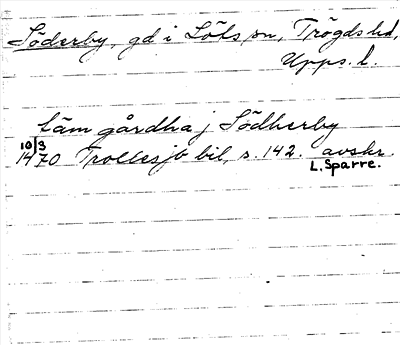 Söderby, gd i Löts sn, Trögds hd,
Upps. l.
täm gårdha j Södherby
10/3
1470 Trollesjö bil, s. 142. avskr.
L. Sparre.